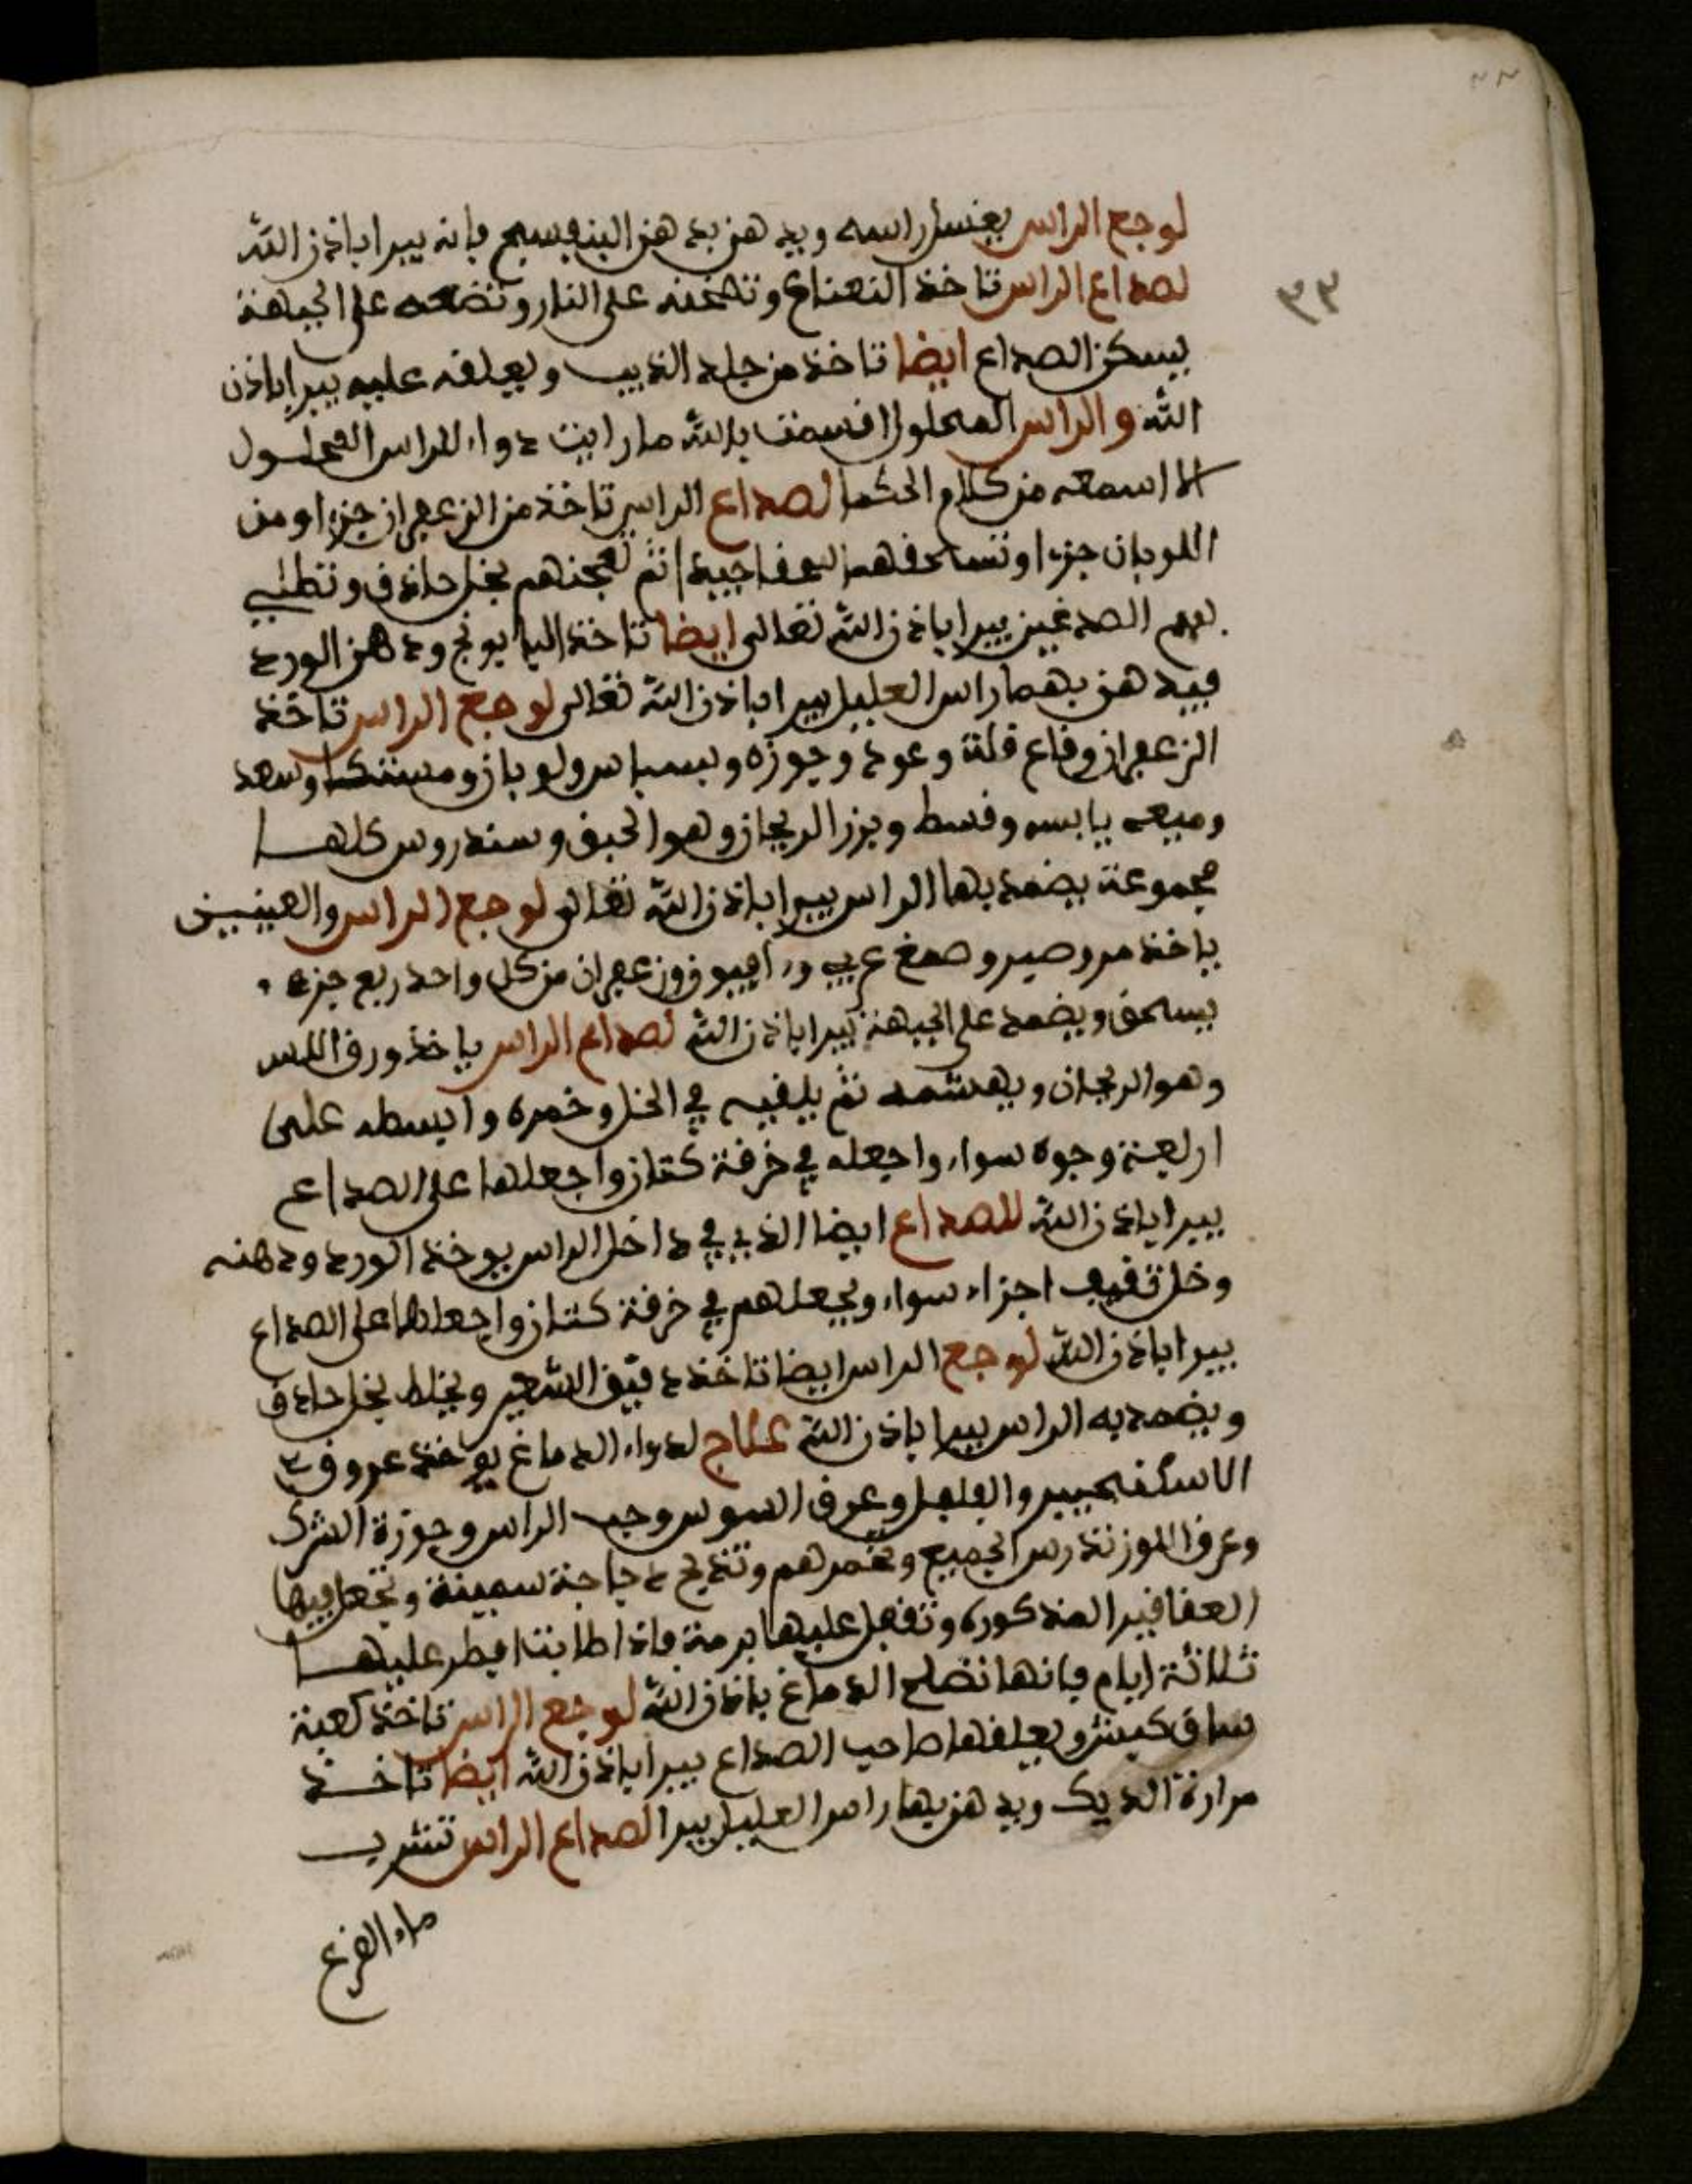 ٣٣
لوجع الراس يغسل راسه ويدهن بدهن البنفسج فانه يبرا باذن الله
لصداع الراس تاخذ النعناع وتسخنه على النار وتضعه على الجبهة
يسكن الصداع ايضا تاخذ من جلد الذيب ويعلقه عليه يبرا باذن
الله والراس المحلول اقسمت بالله ما رايت دواء للراس المحلول
الا اسمعه من كلام الحكما لصداع الراس تاخذ من الزعفران جزءا ومن
اللوبان جزءا وتسحقهم سحقا جيدا ثم تعجنهم بخل حاذق وتطلي
بهم الصدغين يبرا باذن الله تعالى ايضا تاخذ البابونج ودهن الورد
فيدهن بهما راس العليل يبرا باذن الله تعالى لوجع الراس تاخذ
الزعفران وقاع قلة وعود وجوزه وبسباس ولوبان ومستكا وسعد
وميعه يابسه وقسط وبزر الريحان وهو الحبق وسندروس كلها
مجموعة يضمد بها الراس يبرا باذن الله تعالى لوجع الراس والعينين
ياخذ مر وصبر وصمغ عربي و افيون وزعفران من كل واحد ربع جزء
يسحق ويضمد على الجبهة يبرا باذن الله لصداع الراس ياخذ ورق اللاس
وهو الريحان ويهشمه ثم يلقيه في الخل وخمره وابسطه على
اربعة وجوه سواء واجعله في خرفة كتان واجعلها على الصداع
يبرا باذن الله للصداع ايضا الذي في داخل الراس يوخذ الورد ودهنه
وخل ثقيف اجزاء سواء ويجعلهم في خرفة كتان واجعلها على الصداع
يبرا باذن الله لوجع الراس ايضا تاخذ دقيق الشعير ويخلط بخل حاذق
ويضمد به الراس يبرا باذن الله علاج لدواء الدماغ يوخذ عروق
الاسكنجبير والفلفل وعرق السوس وحب الراس وجوزة الشرك
وعرق اللوز تدرس الجميع وتخمرهم وتذبح دجاجة سمينة وتجعل فيها
العقاقير المذكوره وتقفل عليها برمة فاذا طابت افطر عليها
ثلاثة ايام فانها تصلح الدماغ باذن الله لوجع الراس تاخذ كعبة
ساق كبش ويعلقها صاحب الصداع يبرا باذن الله ايضا تاخذ
مرارة الديك ويدهن بها راس العليل يبرا لصداع الراس تشرب
ماء القرع